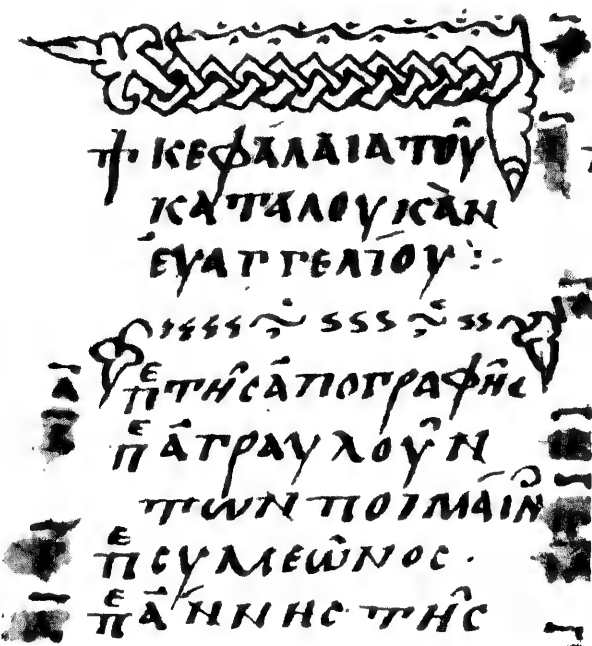 † κεφάλαια τοῦ
κατα λουκὰν
ἐυαγγελίου :·
Α πε τῆς ἀπογραφῆς
πε ἀγραυλούν
των ποιμαίν
πε συμεῶνος ·
πε ἄννης τῆς